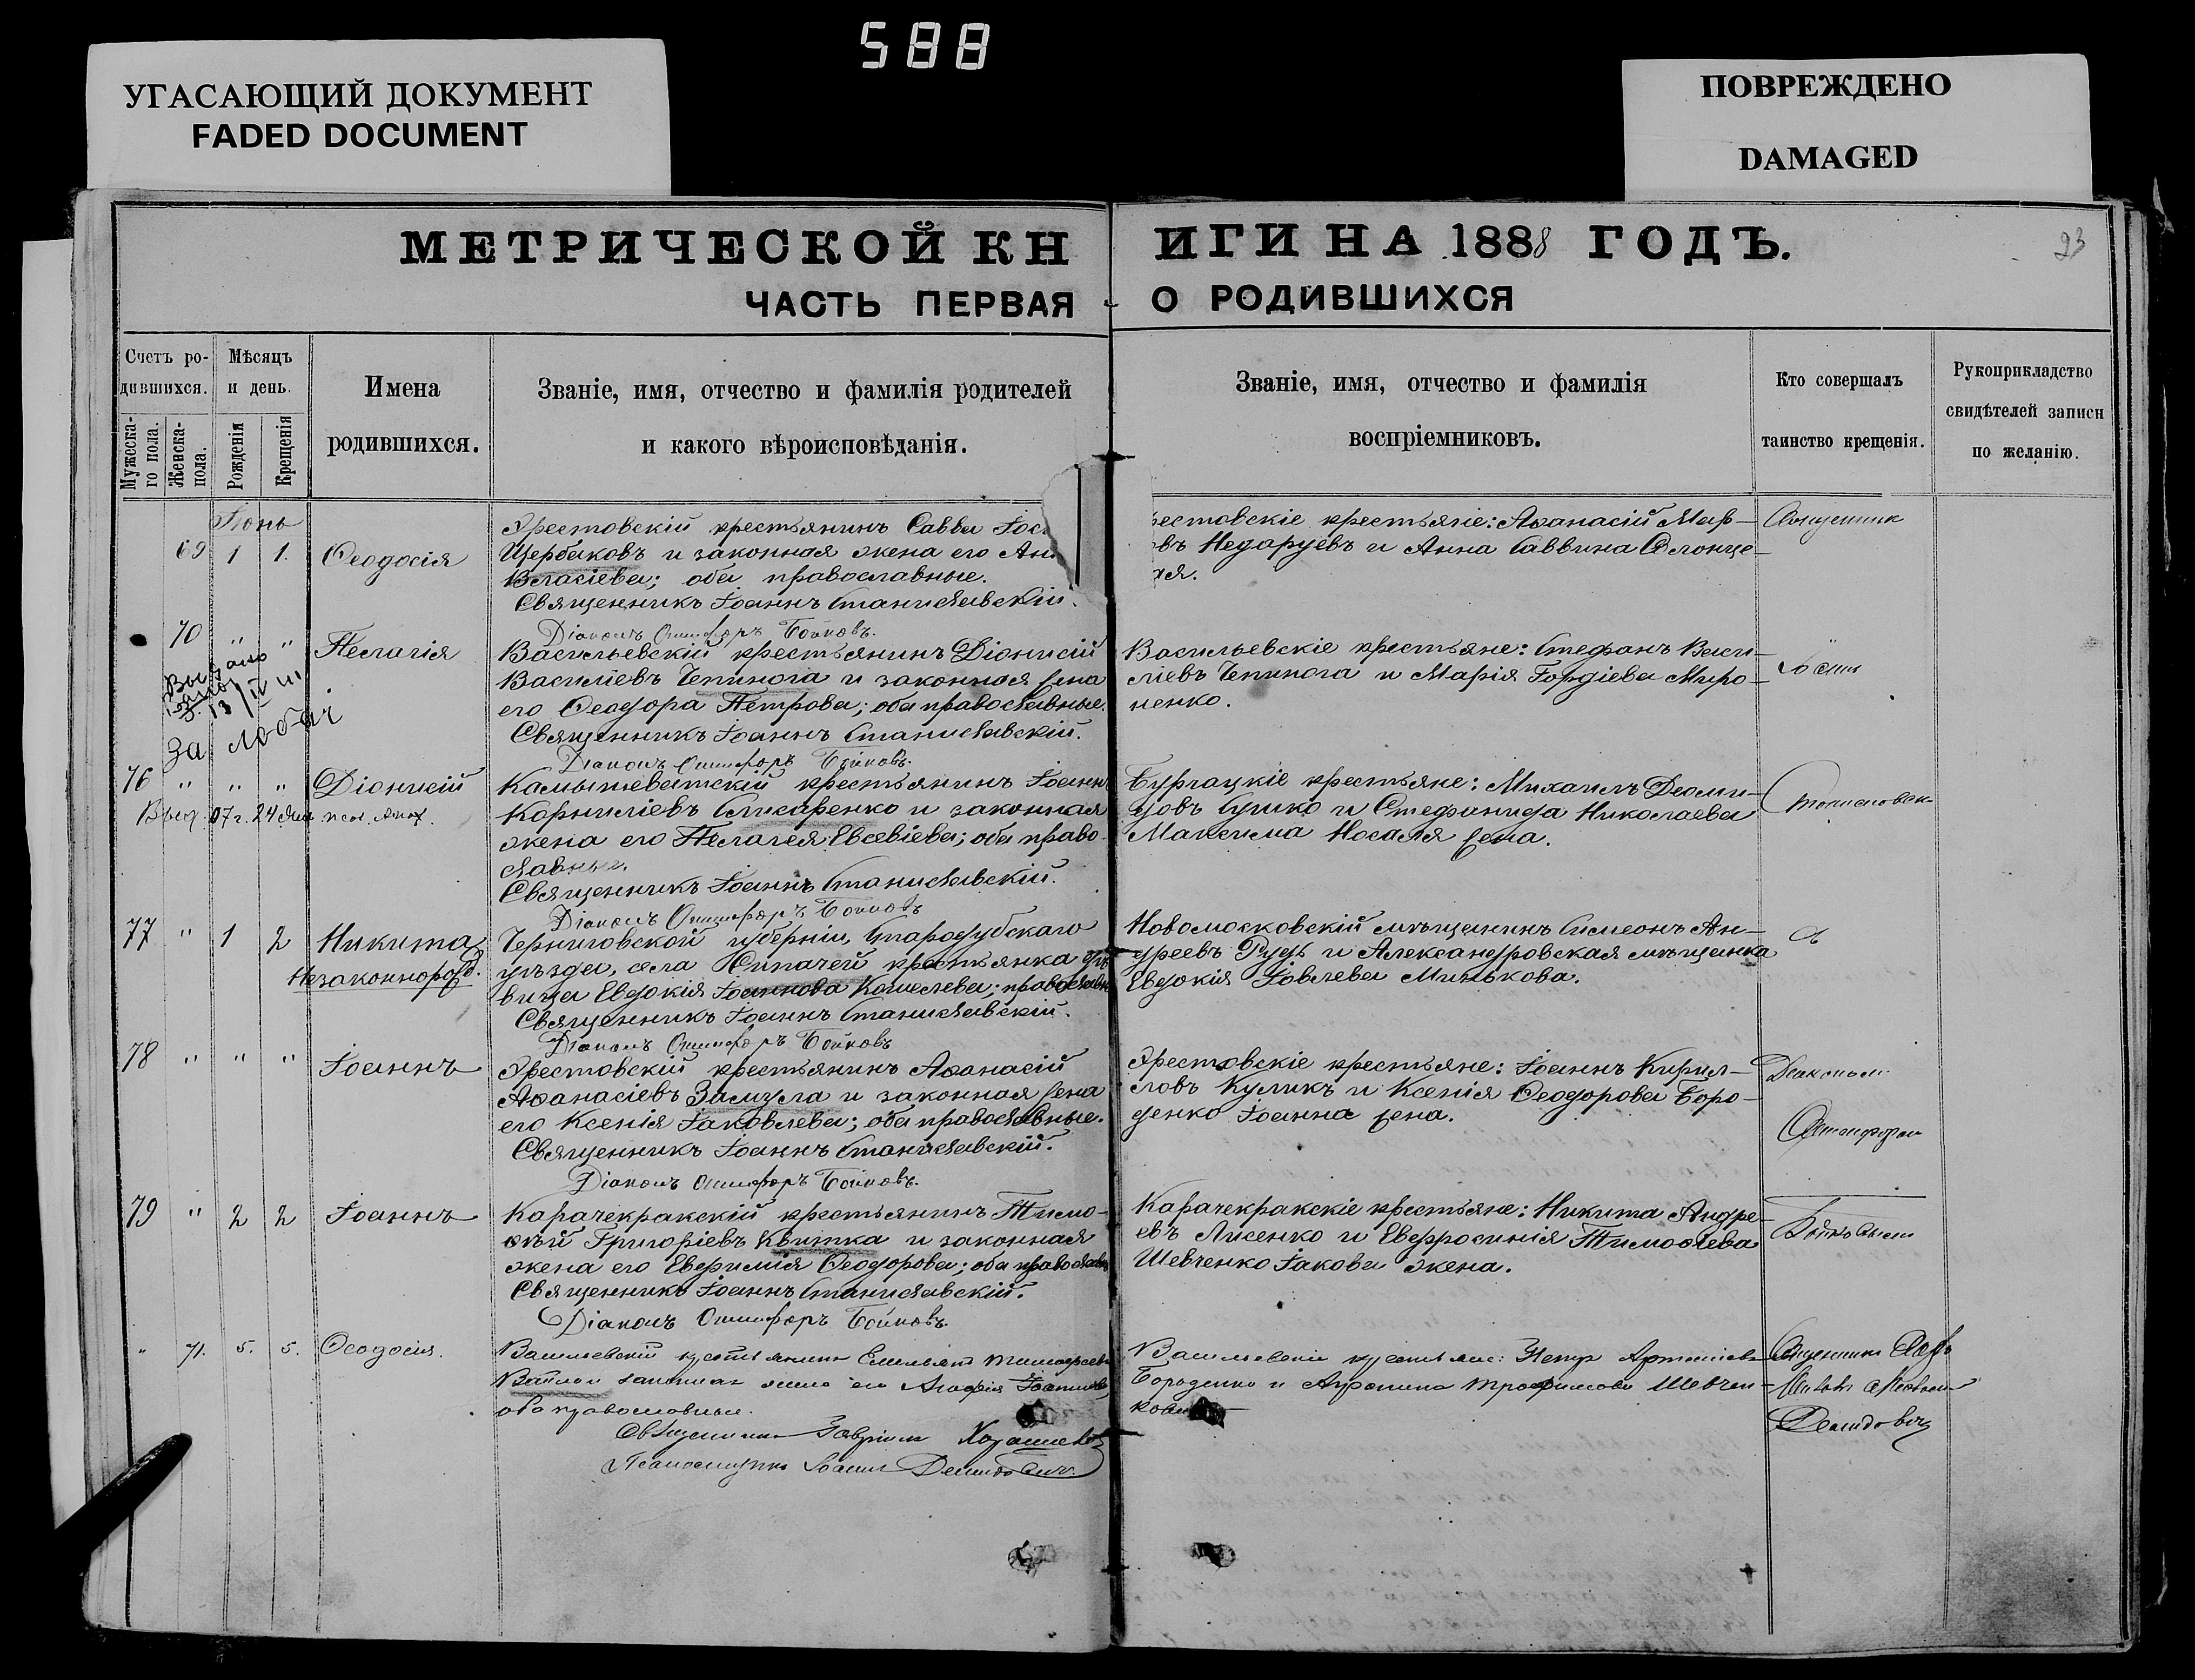 588
УГАСАЮЩИЙ ДОКУМЕНТ
FADED DOCUMENT
ПОВРЕЖДЕНО
DAMAGED
МЕТРИЧЕСКОЙ КНИГИ НА 1888 ГОДЪ.
23
ЧАСТЬ ПЕРВАЯ О РОДИВШИХСЯ
Счетъ родившихся.
Мужеска-го пола.
Женска-пола.
Мѣсяцъ и день.
Рожденія
Крещенія
Имена родившихся.
Званіе, имя, отчество и фамилія родителей
и какого вѣроисповѣданія.
Званіе, имя, отчество и фамилія
воспріемниковъ.
Кто совершалъ
таинство крещенія.
Рукоприкладство
свидѣтелей записи
по желанію.
Іюнь
69 1 1. Ѳеодосія
Эрестовскій крестьянинъ Савва Іос
Щербаковъ и законная жена его Ан
Власіева; оба православные.
Священникъ Іоаннъ Станиславскій.
Діаконъ Онисифоръ Бойковъ.
рестовскіе крестьяне: Аѳанасій Мар-
овъ Недоруевъ и Анна Саввина Слонце-
ая.
Священник
70 " " Пелагія
Выдано
13/IV
За
Васильевскій крестьянинъ Діонисій
Василіевъ Чепинога и законная жена
его Ѳеодора Петрова; оба православные.
Священникъ Іоаннъ Станиславскій.
Діаконъ Онисифоръ Бойковъ.
Васильевскіе крестьяне: Стефанъ Васи-
ліевъ Чепинога и Марія Гордіева Миро-
ненко.
Іоанн
76 " " " Діонисій
Выд. 07 г. 24
Камышеватскій крестьянинъ Іоаннъ
Корниліевъ Слисаренко и законная
жена его Пелагея Евсевіева; оба право-
славные.
Священникъ Іоаннъ Станиславскій.
Діаконъ Онисифоръ Бойковъ
Бургацкіе крестьяне: Михаилъ Деоми-
довъ Сушко и Стефанида Николаева
Максима Носаля жена.
Станиславск
77 " 1 2 Никита
Незаконнорожд.
Черниговской губерніи, Стародубскаго
уѣзда, села крестьянка дѣ-
вица Евдокія Іоаннова Кошелева; православн
Священникъ Іоаннъ Станиславскій.
Діаконъ Онисифоръ Бойковъ
Новомосковскій мѣщанинъ Симеонъ Ан-
дреевъ Рудь и Александровская мѣщанка
Евдокія Іовлева Минькова.
съ
78 " " " Іоаннъ
Эрестовскій крестьянинъ Аѳанасій
Аѳанасіевъ Замула и законная жена
его Ксенія Іаковлева; оба православные.
Священникъ Іоаннъ Станиславскій.
Діаконъ Онисифоръ Бойковъ.
Эрестовскіе крестьяне: Іоаннъ Кирил-
ловъ Куликъ и Ксенія Ѳеодорова Боро-
денко Іоанна жена.
Діакономъ
Онисифором
79 " 2 2 Іоаннъ
Карачекракскій крестьянинъ Тимо-
ѳей Григоріевъ Квитка и законная
жена его Евфимія Ѳеодорова; оба православн
Священникъ Іоаннъ Станиславскій.
Діаконъ Онисифоръ Бойковъ.
Карачекракскіе крестьяне: Никита Андре-
евъ Лисенко и Евфросинія Тимоѳіева
Шевченко Іакова жена.
Бойковым
" 71. 5. 5. Ѳеодосія.
Васильевскій крестьянинъ Емильянъ Тимоѳеевъ
законная жена его Агафія Іоаннова
оба православные.
Священникъ Гавріилъ
Псаломщикъ Іоаннъ Демидовичъ.
Васильевскіе крестьяне: Петр
Бороденко и Трофимова Шевчен-
кова
Священникъ
Демидовичъ